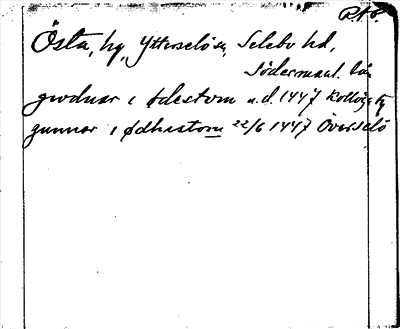 RAp.
Östa, hg, Ytterselö sn, Selebo hd,
Södermanl. län
gwdnar i ødestom u.d. 1447
gunnar i ødhastom 22/6 1447 Överselö